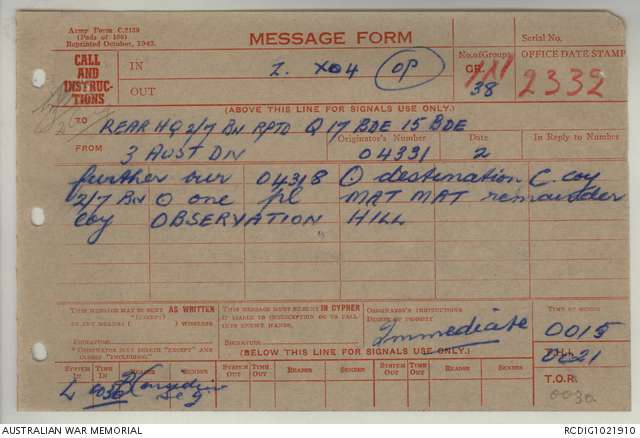 Army Form C.2139
(Pads of 100)
Reprinted October, 1942.
MESSAGE FORM
Serial No.
CALL AND INSTRUC-TIONS
IN
Z. X04 OP
No. of Groups
GR.
38
OFFICE DATE STAMP
2332
OUT
(ABOVE THIS LINE FOR SIGNALS USE ONLY.)
TO
REAR HQ 2/7 BN RPTD Q 17 BDE 15 BDE
FROM
Originator's Number
Date
In Reply to Number
3 AUST DIV
04331
2
further our 04318 O destination C. coy
2/7 BN O one pl MAT MAT remainder
coy OBSERVATION HILL
THIS MESSAGE MAY BE SENT AS WRITTEN
(EXCEPT)
BY ANY MEANS ( ) WIRELESS.
SIGNATURE
*ORIGINATOR MAY DELETE "EXCEPT" AND INSERT "INCLUDING."
THIS MESSAGE MUST BE SENT IN CYPHER
IF LIABLE TO INTERCEPTION OR TO FALL INTO ENEMY HANDS.
SIGNATURE
ORIGINATOR'S INSTRUCTIONS
DEGREE OF PRIORITY
Immediate
TIME OF ORIGIN
0015
T.H.I.
0021
T.O.R.
0030
(BELOW THIS LINE FOR SIGNALS USE ONLY.)
SYSTEM IN
TIME IN
READER
SENDER
SYSTEM OUT
TIME OUT
READER
SENDER
SYSTEM OUT
TIME OUT
READER
SENDER
L 0030
AUSTRALIAN WAR MEMORIAL
RCDIG1021910